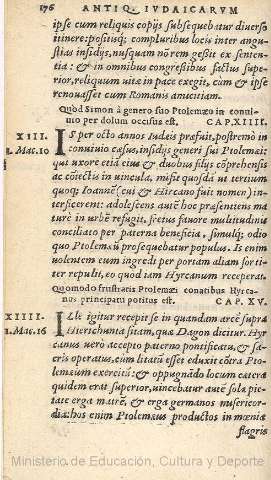 176 ANTIQ. IVDAICARVM
ipse cum reliquis copijs subsequebatur diuerso
itinere: positisq; compluribus locis inter angu-
stias insidijs, nusquam nõ rem geßit ex senten-
tia: & in omnibus congreßibus factus supe-
rior, reliquum uitæ in pace exegit, cum & ipse
renouasset cum Romanis amicitiam.
Quod Simon à genero suo Ptolemæo in conui-
uio per dolum occisus est. CAP. XIIII.
XIII.
1. Mac. 10
IS per octo annos Iudeis præfuit, postremò in
conuiuio cæsus, insidijs generi sui Ptolemæi:
qui uxore etiã eius & duobus filijs cõprehensis
ac cõiectis in uincula, misit quosdã ut tertium
quoq; Ioannẽ (cui & Hircano fuit nomen) in-
terficerent: adolescens autẽ hoc præsentiens ma
turè in urbẽ refugit, fretus fauore multitudinis
conciliato per paterna beneficia, simulq; odio
quo Ptolemæũ prosequebatur populus. Is enim
uolentem eum ingredi per portam aliam for ti-
ter repulit, eo quod iam Hyrcanum receperat.
Quomodo frustratis Ptolemæi conatibus Hyrca-
nus principatu potitus est. CAP. XV.
XIIII.
1. Mac. 16
ILle igitur recepit se in quandam arcẽ supra
Herichunta sitam, quæ Dagon dicitur. Hyr
canus uerò accepto paterno pontificatu, & sa-
cris operatus, cum litatũ esset eduxit cõtra Pto
lemæum exercitũ: & oppugnãdo locum cætera
quidem erat superior, uincebatur autẽ sola pie-
tate erga matrẽ, & erga germanos misericor-
dia: hos enim Ptolemæus productos in mœnia
flagris
Ministerio de Educación, Cultura y Deporte